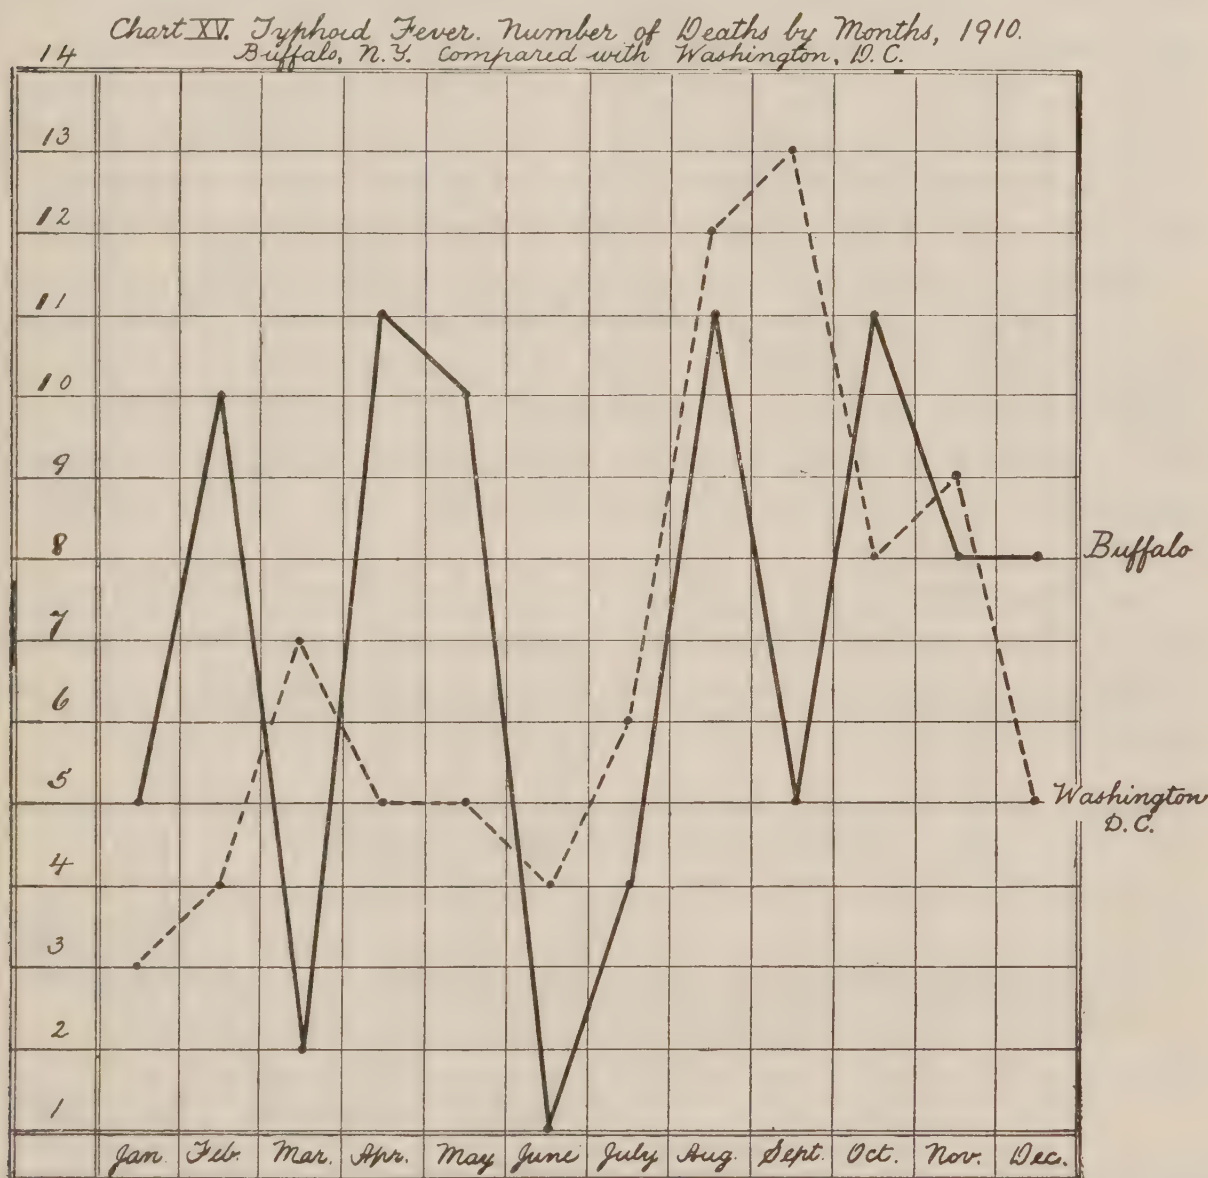 Chart XV. Typhoid Fever. Number of Deaths by Months, 1910.
Buffalo, N.Y. Compared with Washington, D.C.
14
13
12
11
10
9
8
Buffalo
7
6
5
Washington
D.C.
4
3
2
1
Jan. Feb. Mar. Apr. May June July Aug. Sept. Oct. Nov. Dec.